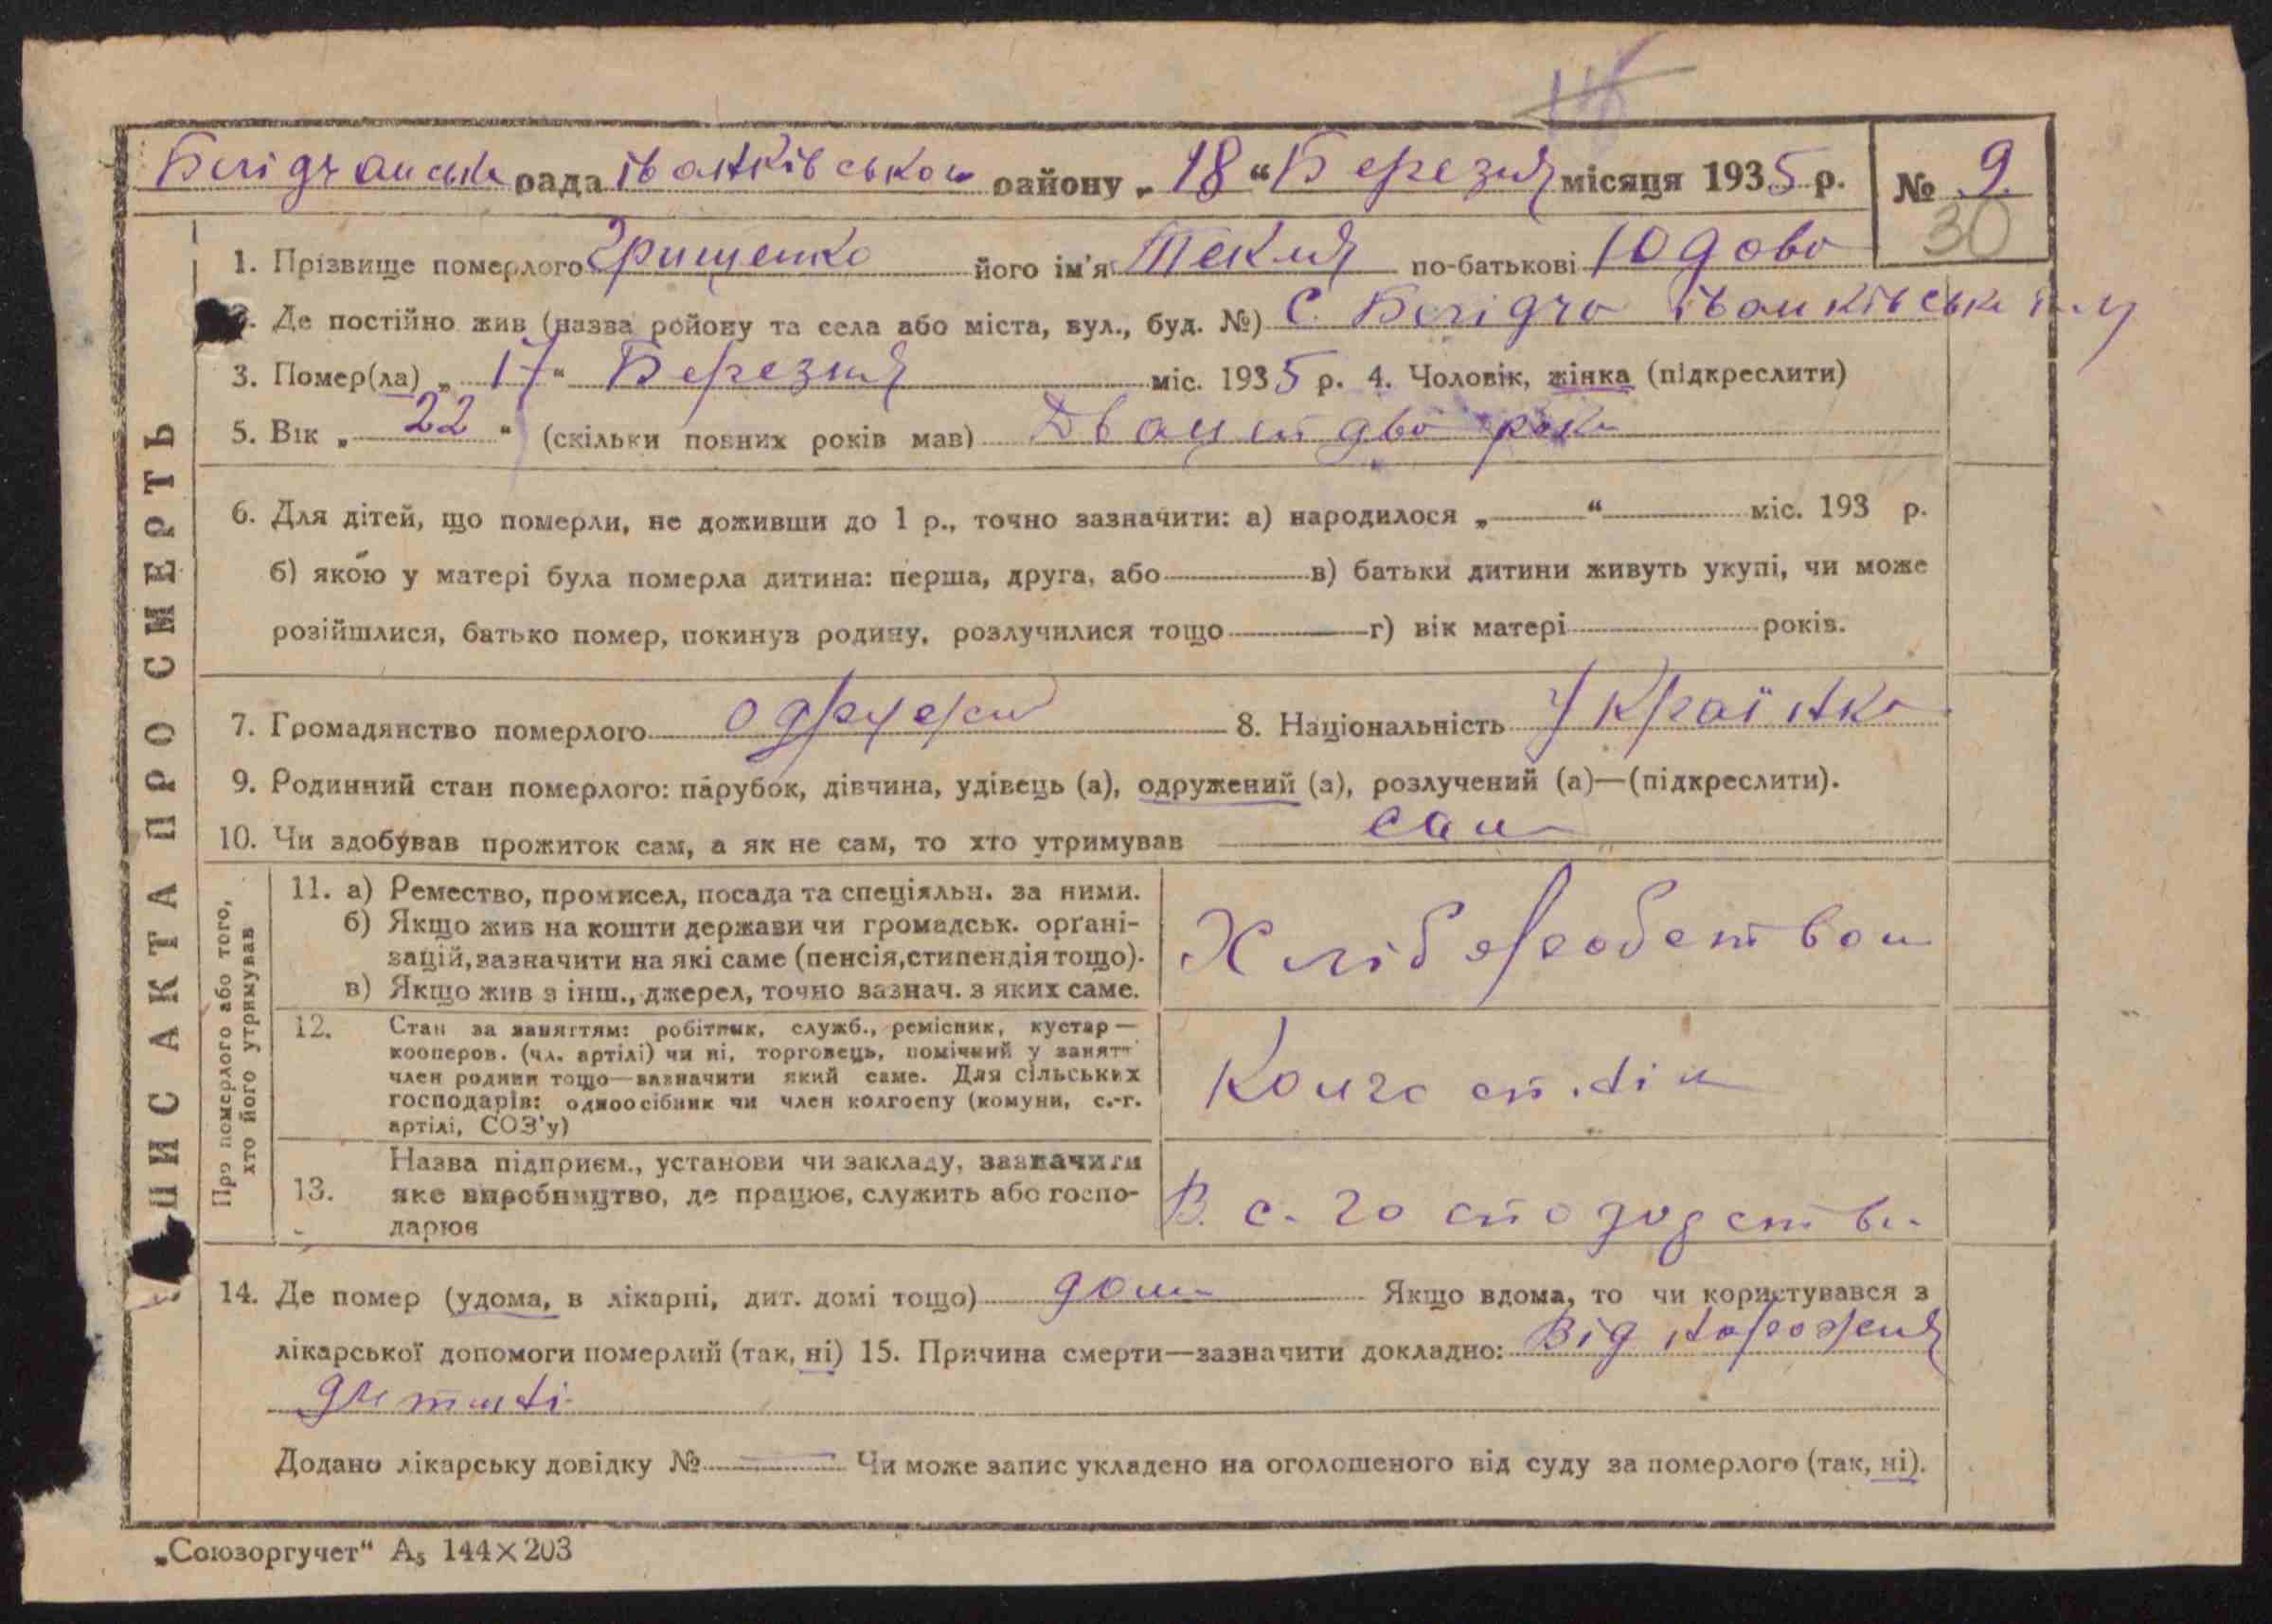 рада Іванківського району „18“ Березня місяця 1935 р. № 9
30
1. Прізвище померлого Грищенко його ім'я Текля по-батькові Юдова
2. Де постійно жив (назва району та села або міста, вул., буд. №) С.
3. Помер(ла) „17“ Березня міс. 1935 р. 4. Чоловік, жінка (підкреслити)
5. Вік „22“ (скільки повних років мав) Двацить два роки
6. Для дітей, що померли, не доживши до 1 р., точно зазначити: а) народилося „ “ міс. 193 р.
б) якою у матері була померла дитина: перша, друга, або в) батьки дитини живуть укупі, чи може
розійшлися, батько помер, покинув родину, розлучилися тощо г) вік матері років.
7. Громадянство померлого 8. Національність Українка
9. Родинний стан померлого: парубок, дівчина, удівець (а), одружений (а), розлучений (а)—(підкреслити).
10. Чи здобував прожиток сам, а як не сам, то хто утримував сам
ПИС АКТА ПРО СМЕРТЬ
Про померлого або того,
хто його утримував
11. а) Ремество, промисел, посада та спеціяльн. за ними.
б) Якщо жив на кошти держави чи громадськ. органі-
зацій, зазначити на які саме (пенсія, стипендія тощо).
в) Якщо жив з інш., джерел, точно зазнач. з яких саме.
Хліборобством
12. Стан за заняттям: робітник, служб., ремісник, кустар—
кооперов. (чл. артілі) чи ні, торговець, помічний у занятт
член родини тощо—зазначити який саме. Для сільських
господарів: одноосібник чи член колгоспу (комуни, с.-г.
артілі, СОЗ'у)
13. Назва підприєм., установи чи закладу, зазначити
яке виробництво, де працює, служить або госпо-
дарює
В с. господарстві
14. Де помер (удома, в лікарні, дит. домі тощо) дома Якщо вдома, то чи користувався з
лікарської допомоги померлий (так, ні) 15. Причина смерти—зазначити докладно: Від народження
дитині
Додано лікарську довідку № — Чи може запис укладено на оголошеного від суду за померлого (так, ні).
„Союзоргучет“ А₅ 144×203